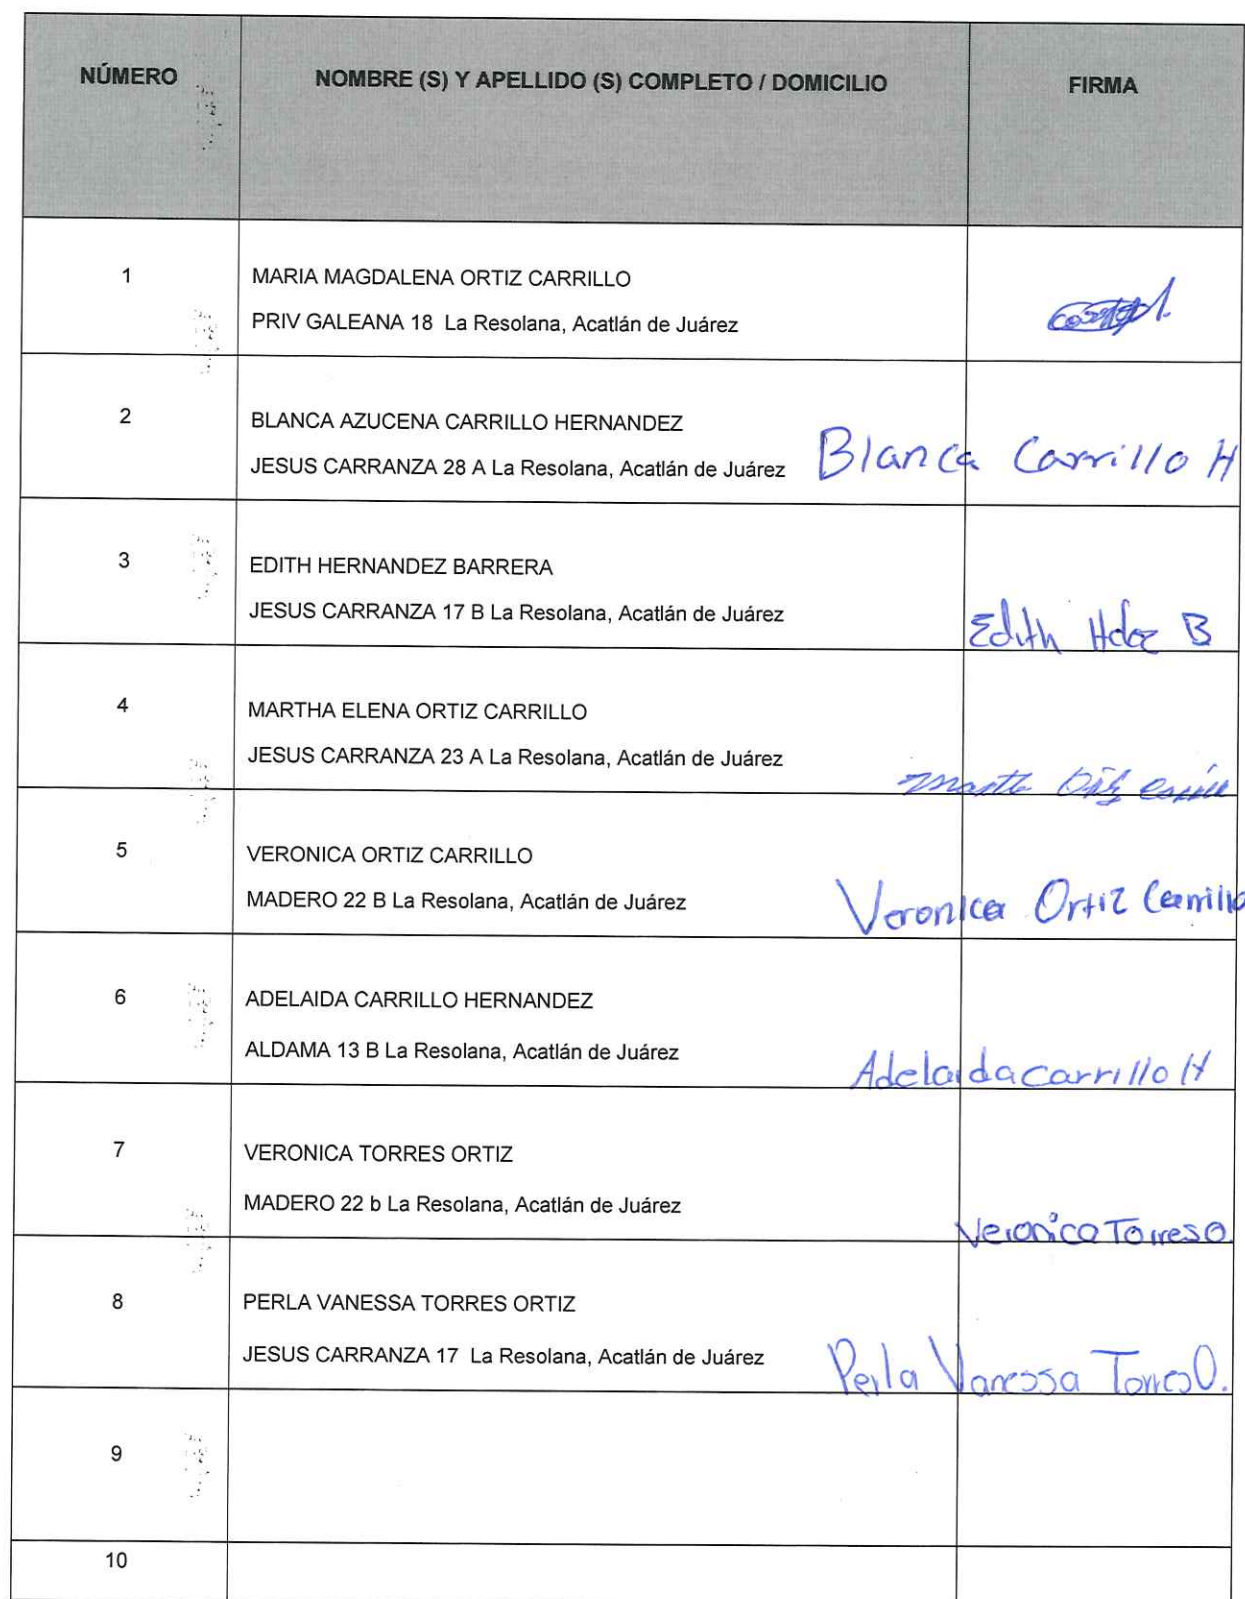 NÚMERO NOMBRE (S) Y APELLIDO (S) COMPLETO / DOMICILIO FIRMA
1 MARIA MAGDALENA ORTIZ CARRILLO
PRIV GALEANA 18 La Resolana, Acatlán de Juárez
2 BLANCA AZUCENA CARRILLO HERNANDEZ
JESUS CARRANZA 28 A La Resolana, Acatlán de Juárez Blanca Carrillo H
3 EDITH HERNANDEZ BARRERA
JESUS CARRANZA 17 B La Resolana, Acatlán de Juárez Edith Hdez B
4 MARTHA ELENA ORTIZ CARRILLO
JESUS CARRANZA 23 A La Resolana, Acatlán de Juárez
5 VERONICA ORTIZ CARRILLO
MADERO 22 B La Resolana, Acatlán de Juárez Veronica Ortiz Carrillo
6 ADELAIDA CARRILLO HERNANDEZ
ALDAMA 13 B La Resolana, Acatlán de Juárez Adelaida carrillo H
7 VERONICA TORRES ORTIZ
MADERO 22 b La Resolana, Acatlán de Juárez Veronica Torres O.
8 PERLA VANESSA TORRES ORTIZ
JESUS CARRANZA 17 La Resolana, Acatlán de Juárez Perla Vanessa Torres O.
9
10